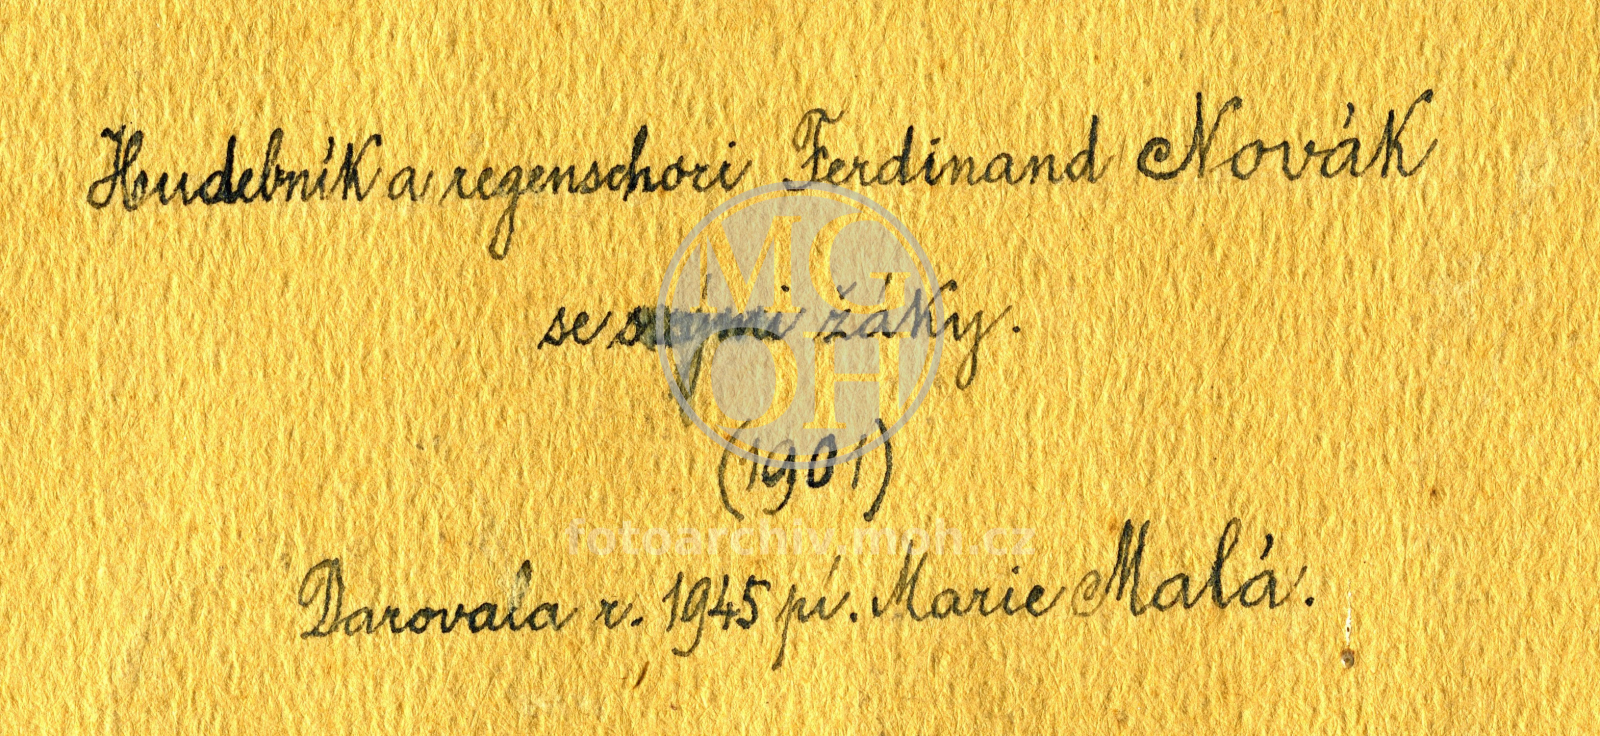 Hudebník a regenschori Ferdinand Novák
se svými žáky.
(1901)
fotoarchiv.mgh.cz
Darovala r. 1945 pí. Marie Malá.
MG
OH